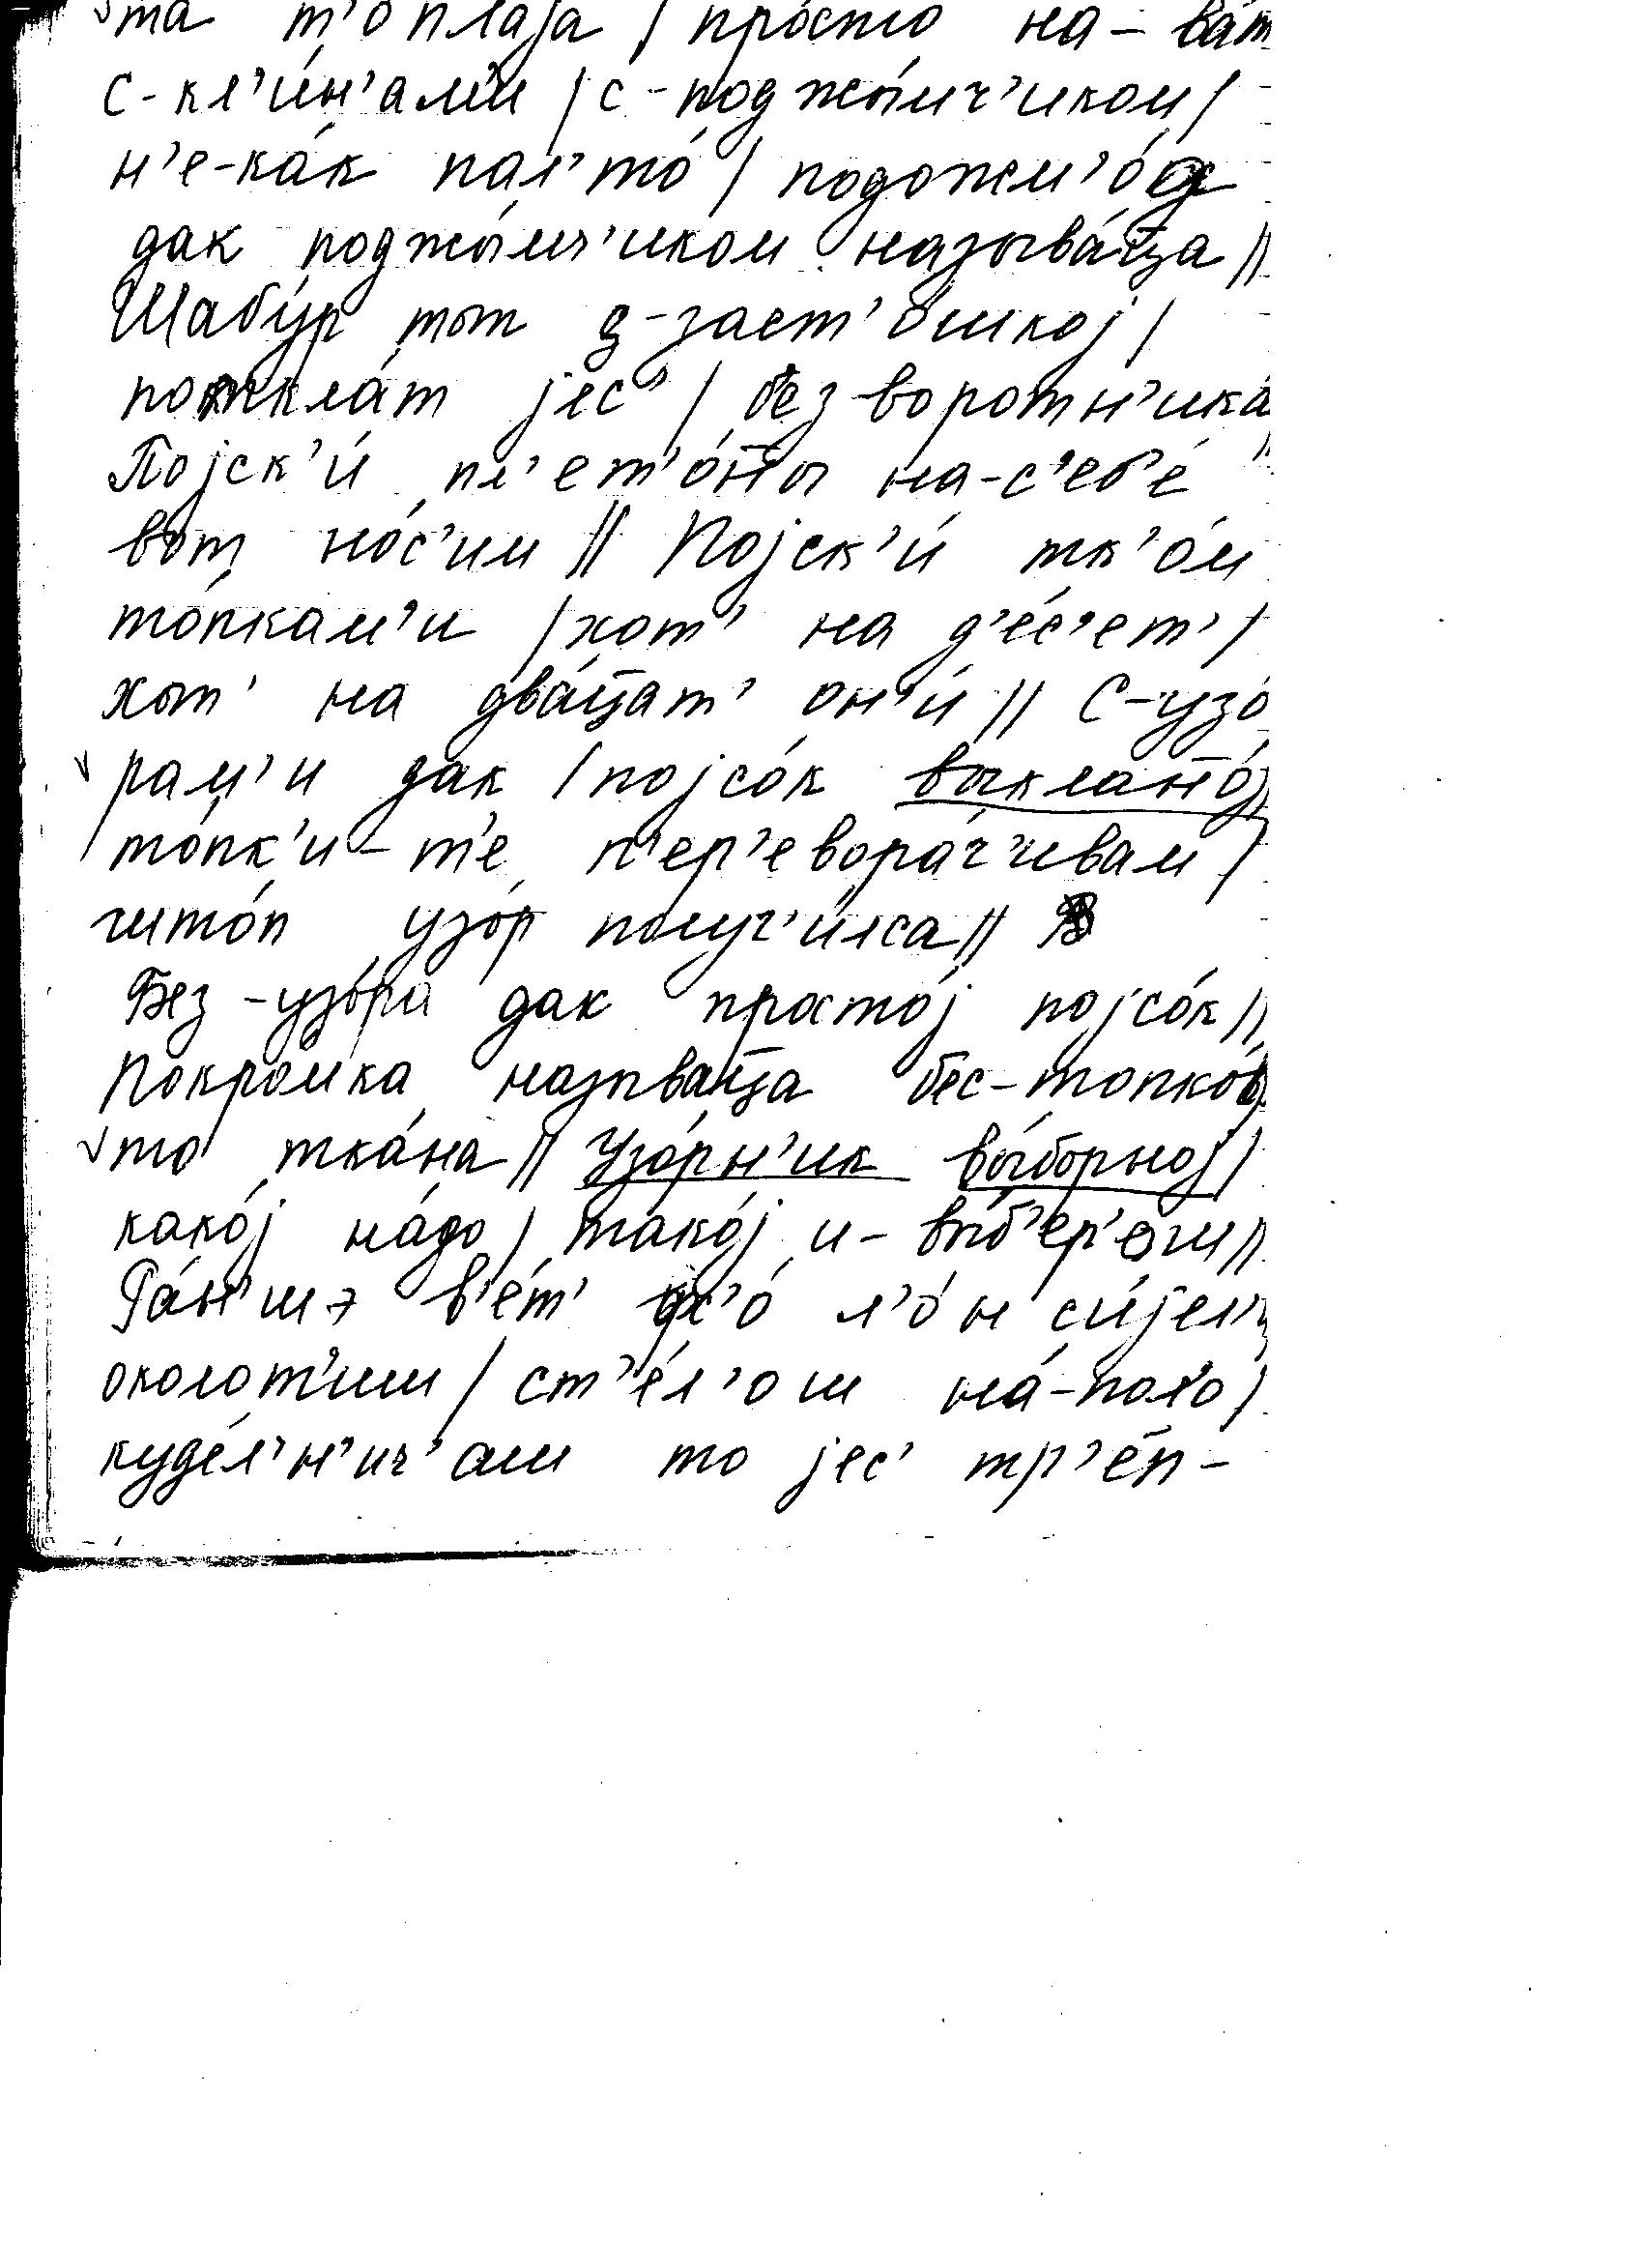 та т'оплаjа / просто на-ва́т
с-кл'и́н'ам'и / с-поджы́мч'иком /
н'е-ка́к пал'то́ / подожм'о́с
дак поджы́мч'иком называ́ц̅а //
Шабу́р тот з-заст'о́шкоj /
потклáт jес' / без-воротн'ика́ //
Поjск'и́ пл'ет'о́ны на-с'еб'е́
вот но́с'им // Поjск'и́ тк'о́м
то́пкам'и / хот' на д'е́с'ет' /
хот' на два́ц̅ат' он'и́ // С-узо́
рам'и дак / поjсо́к выклано́j
то́пк'и-т'е п'ер'евора́ч'ивам /
штоп узо́р получ'и́лса //
Без-узо́ра дак просто́j поjсо́к //
Покро́мка называ́ц̅а бес-топко́в
то тка́на // Узо́рн'ик вы́борноj /
како́j на́до / тако́j и-вы́б'ер'ош //
Ра́н'шэ в'ет' фс'о́ л'о́н с'и́jел'и
околот'иш / ст'е́л'ош на́-пол'о /
куде́л'н'ич'аш то jес' тр'е́п-